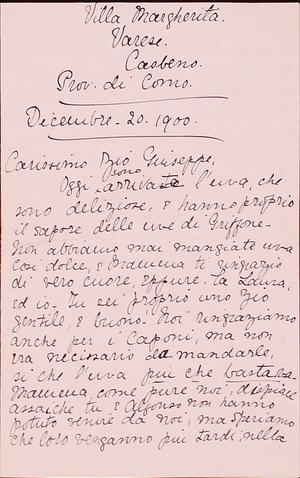 Villa Margherita.
Varese.
Casbeno.
Prov. di Como.
Dicembre - 20. 1900.
Carissimo Zio Giuseppe,
Oggi sono arrivate l'uva, che
sono deliziose, e hanno proprio
il sapore delle uve di Griffone -
Non abbiamo mai mangiate uva
così dolce, e Mamma ti ringrazio
di vero cuore, eppure, la Laura,
ed io - Tu sei proprio uno Zio
gentile, e buono - Noi ringraziamo
anche per i Caponi, ma non
era necessario mandarle,
si che l'uva più che bastava -
Mamma, come pure noi, dispiace
assai che tu e Alfonso non hanno
potuto venire da noi, ma speriamo
che loro venganno più tardi, nella